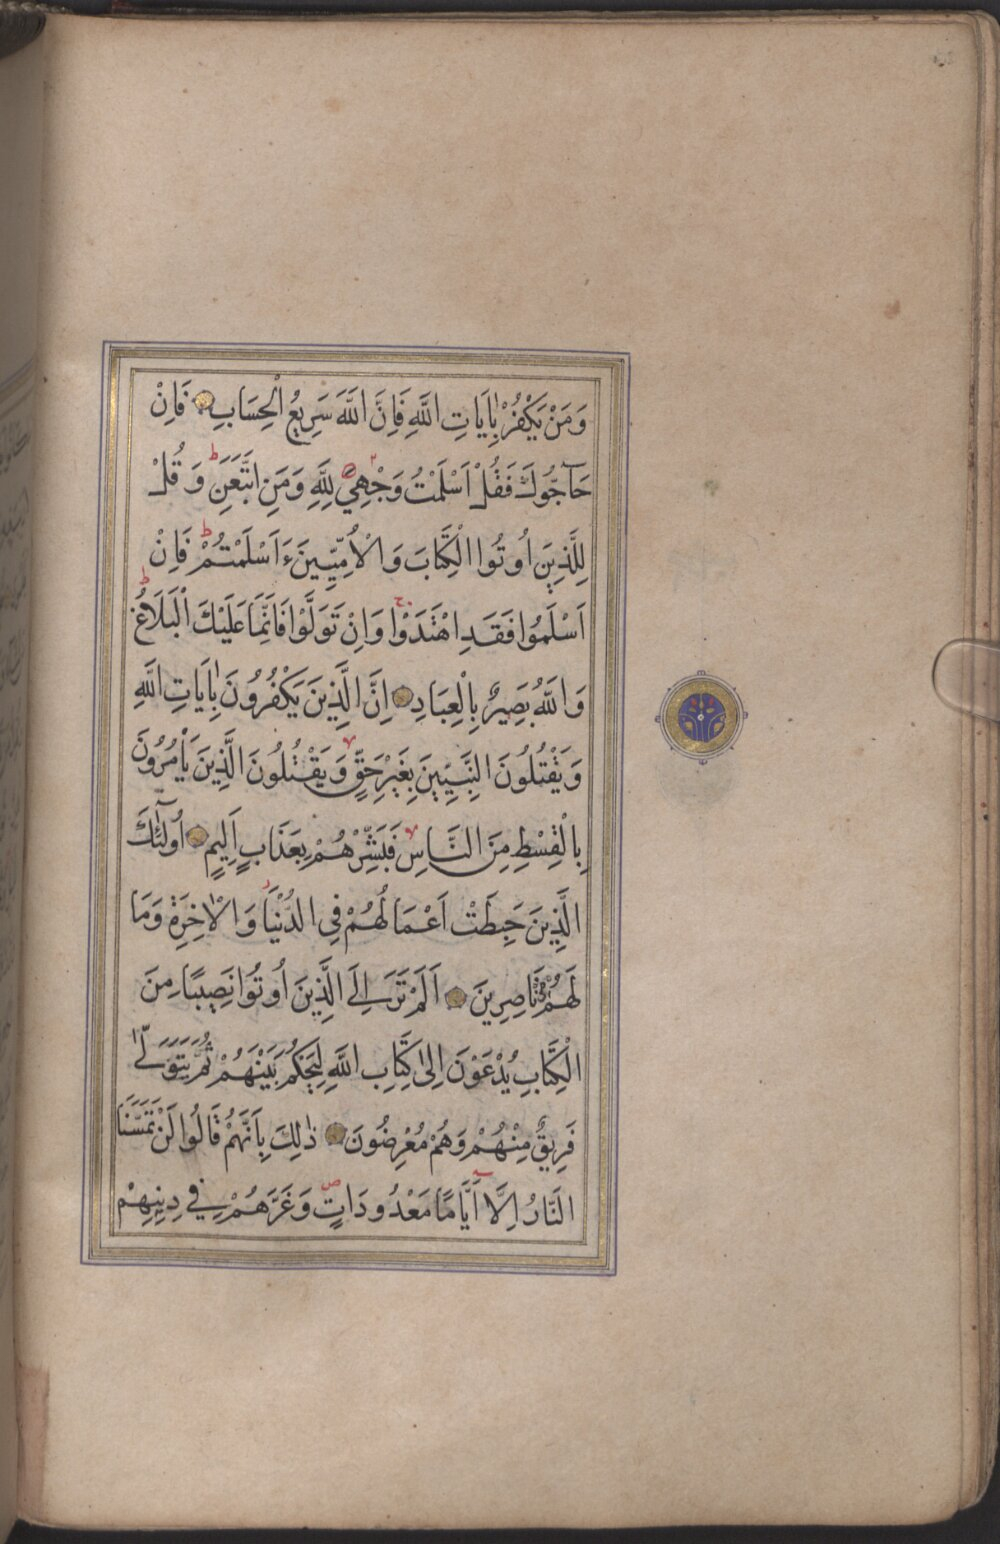 وَمَنْ يَكْفُرْ بِاٰيَاتِ اللَّهِ فَاِنَّ اللَّهَ سَرِيعُ الْحِسَابِ فَاِنْ
حَآجُّوكَ فَقُلْ اَسْلَمْتُ وَجْهِيَ لِلَّهِ وَمَنِ اتَّبَعَنِ وَقُلْ
لِلَّذِينَ اُوتُوا الْكِتَابَ وَالْاُمِّيّينَ ءَاَسْلَمْتُمْ فَاِنْ
اَسْلَمُوا فَقَدِ اهْتَدَوْا وَاِنْ تَوَلَّوْا فَاِنَّمَا عَلَيْكَ الْبَلَاغُ
وَاللَّهُ بَصِيرٌ بِالْعِبَادِ اِنَّ الَّذِينَ يَكْفُرُونَ بِاٰيَاتِ اللَّهِ
وَيَقْتُلُونَ النَّبِيّينَ بِغَيْرِ حَقٍّ وَيَقْتُلُونَ الَّذِينَ يَأْمُرُونَ
بِالْقِسْطِ مِنَ النَّاسِ فَبَشِّرْهُمْ بِعَذَابٍ اَلِيمٍ اُولٰٓئِكَ
الَّذِينَ حَبِطَتْ اَعْمَالُهُمْ فِي الدُّنْيَا وَالْاٰخِرَةِ وَمَا
لَهُمْ مِنْ نَاصِرِينَ اَلَمْ تَرَ اِلَى الَّذِينَ اُوتُوا نَصِيبًا مِنَ
الْكِتَابِ يُدْعَوْنَ اِلٰى كِتَابِ اللَّهِ لِيَحْكُمَ بَيْنَهُمْ ثُمَّ يَتَوَلّٰى
فَرِيقٌ مِنْهُمْ وَهُمْ مُعْرِضُونَ ذٰلِكَ بِاَنَّهُمْ قَالُوا لَنْ تَمَسَّنَا
النَّارُ اِلَّا اَيَّامًا مَعْدُودَاتٍ وَغَرَّهُمْ فِي دِينِهِمْ